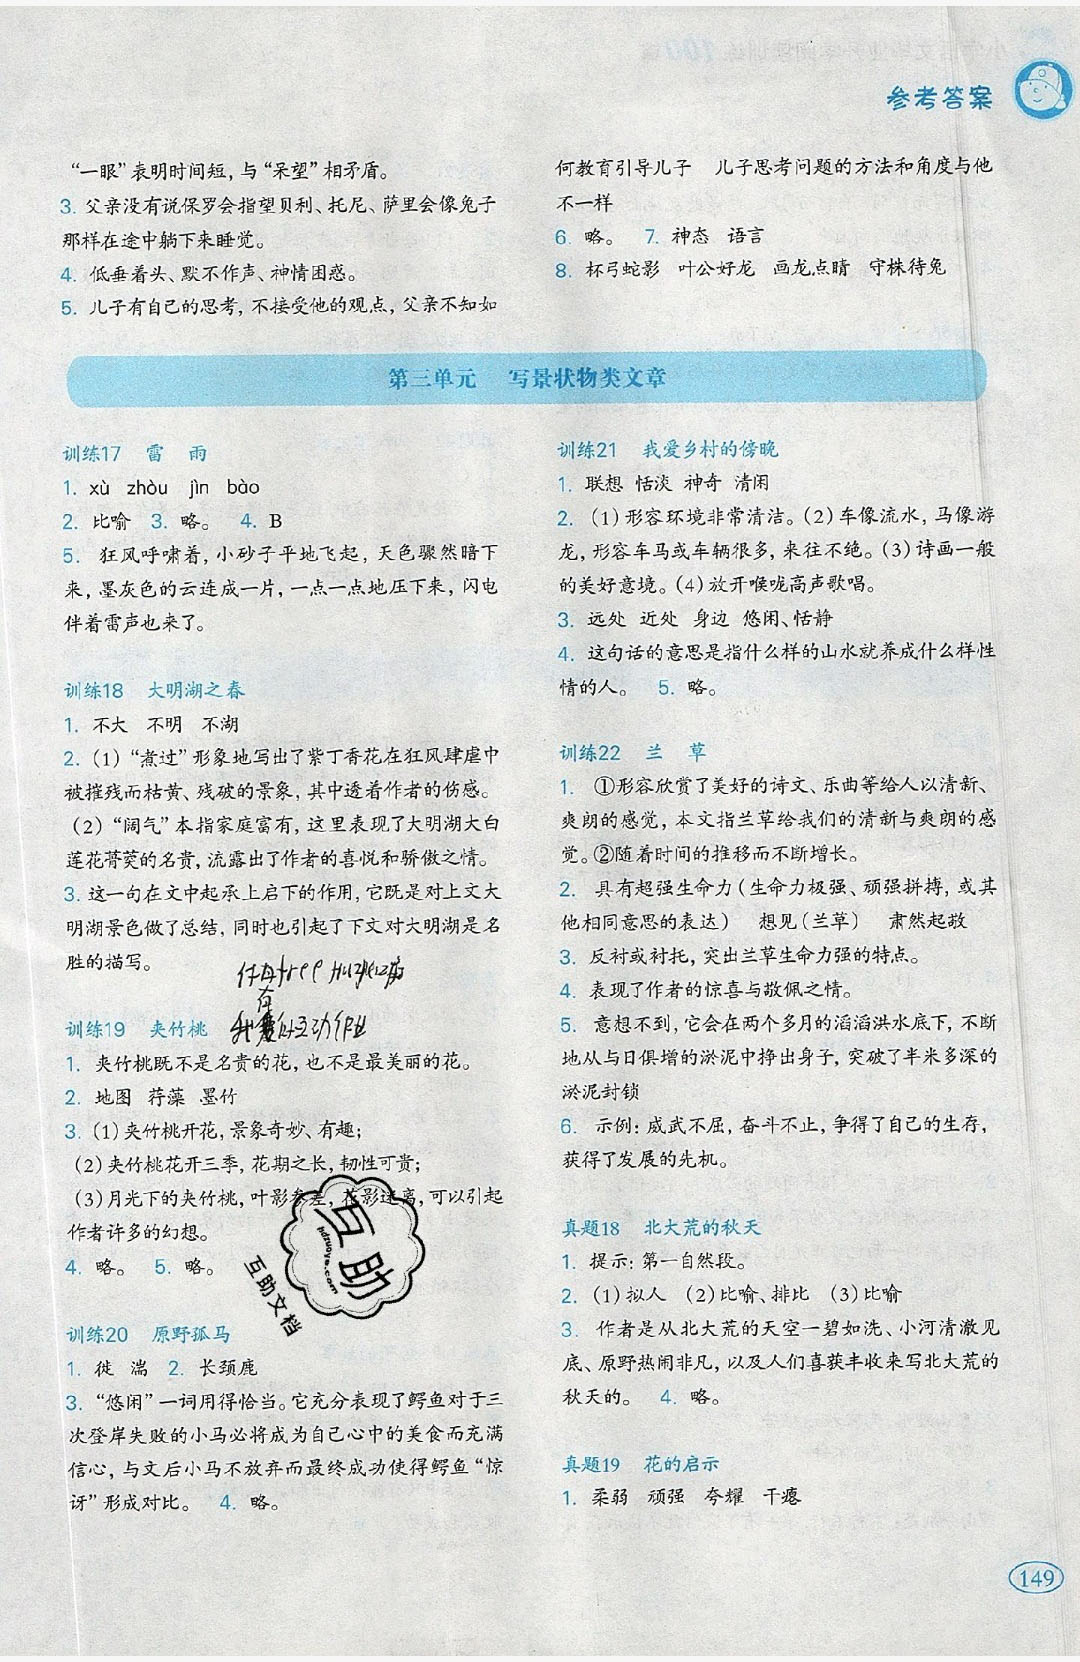 参考答案
“一眼”表明时间短，与“呆望”相矛盾。
3. 父亲没有说保罗会指望贝利、托尼、萨里会像兔子
那样在途中躺下来睡觉。
4. 低垂着头、默不作声、神情困惑。
5. 儿子有自己的思考，不接受他的观点，父亲不知如
何教育引导儿子 儿子思考问题的方法和角度与他
不一样
6. 略。 7. 神态 语言
8. 杯弓蛇影 叶公好龙 画龙点睛 守株待兔
第三单元 写景状物类文章
训练17 雷 雨
1. xù zhòu jìn bào
2. 比喻 3. 略。 4. B
5. 狂风呼啸着，小砂子平地飞起，天色骤然暗下
来，墨灰色的云连成一片，一点一点地压下来，闪电
伴着雷声也来了。
训练18 大明湖之春
1. 不大 不明 不湖
2. (1)“煮过”形象地写出了紫丁香花在狂风肆虐中
被摧残而枯黄、残破的景象，其中透着作者的伤感。
(2)“阔气”本指家庭富有，这里表现了大明湖大白
莲花菁葖的名贵，流露出了作者的喜悦和骄傲之情。
3. 这一句在文中起承上启下的作用，它既是对上文大
明湖景色做了总结，同时也引起了下文对大明湖是名
胜的描写。
训练19 夹竹桃
1. 夹竹桃既不是名贵的花，也不是最美丽的花。
2. 地图 荇藻 墨竹
3. (1)夹竹桃开花，景象奇妙、有趣；
(2)夹竹桃花开三季，花期之长，韧性可贵；
(3)月光下的夹竹桃，叶影参差，花影迷离，可以引起
作者许多的幻想。
4. 略。 5. 略。
互助
hdzuoye.com
互助文档
训练20 原野孤马
1. 徙 湍 2. 长颈鹿
3. “悠闲”一词用得恰当。它充分表现了鳄鱼对于三
次登岸失败的小马必将成为自己心中的美食而充满
信心，与文后小马不放弃而最终成功使得鳄鱼“惊
讶”形成对比。 4. 略。
训练21 我爱乡村的傍晚
1. 联想 恬淡 神奇 清闲
2. (1)形容环境非常清洁。(2)车像流水，马像游
龙，形容车马或车辆很多，来往不绝。(3)诗画一般
的美好意境。(4)放开喉咙高声歌唱。
3. 远处 近处 身边 悠闲、恬静
4. 这句话的意思是指什么样的山水就养成什么样性
情的人。 5. 略。
训练22 兰 草
1. ①形容欣赏了美好的诗文、乐曲等给人以清新、
爽朗的感觉，本文指兰草给我们的清新与爽朗的感
觉。②随着时间的推移而不断增长。
2. 具有超强生命力(生命力极强、顽强拼搏，或其
他相同意思的表达) 想见(兰草) 肃然起敬
3. 反衬或衬托，突出兰草生命力强的特点。
4. 表现了作者的惊喜与敬佩之情。
5. 意想不到，它会在两个多月的滔滔洪水底下，不断
地从与日俱增的淤泥中挣出身子，突破了半米多深的
淤泥封锁
6. 示例：威武不屈，奋斗不止，争得了自己的生存，
获得了发展的先机。
真题18 北大荒的秋天
1. 提示：第一自然段。
2. (1)拟人 (2)比喻、排比 (3)比喻
3. 作者是从北大荒的天空一碧如洗、小河清澈见
底、原野热闹非凡，以及人们喜获丰收来写北大荒的
秋天的。 4. 略。
真题19 花的启示
1. 柔弱 顽强 夸耀 干瘪
149